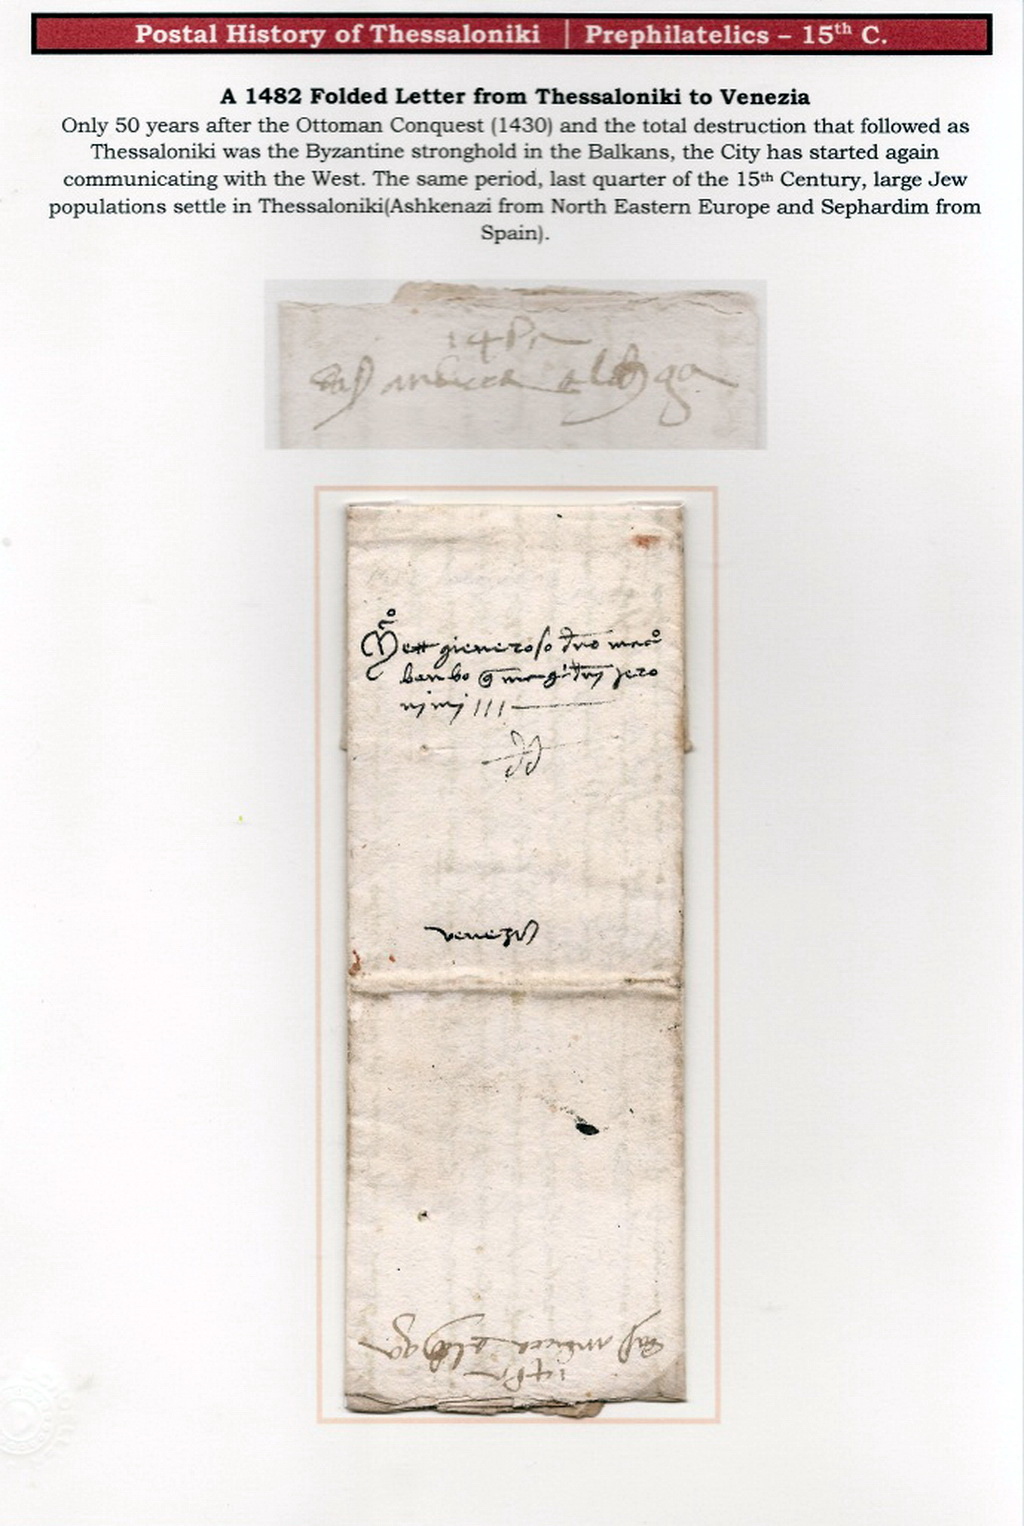 Postal History of Thessaloniki | Prephilatelics – 15th C.
A 1482 Folded Letter from Thessaloniki to Venezia
Only 50 years after the Ottoman Conquest (1430) and the total destruction that followed as
Thessaloniki was the Byzantine stronghold in the Balkans, the City has started again
communicating with the West. The same period, last quarter of the 15th Century, large Jew
populations settle in Thessaloniki(Ashkenazi from North Eastern Europe and Sephardim from
Spain).
gieneroso dno
barbo jero
nimj